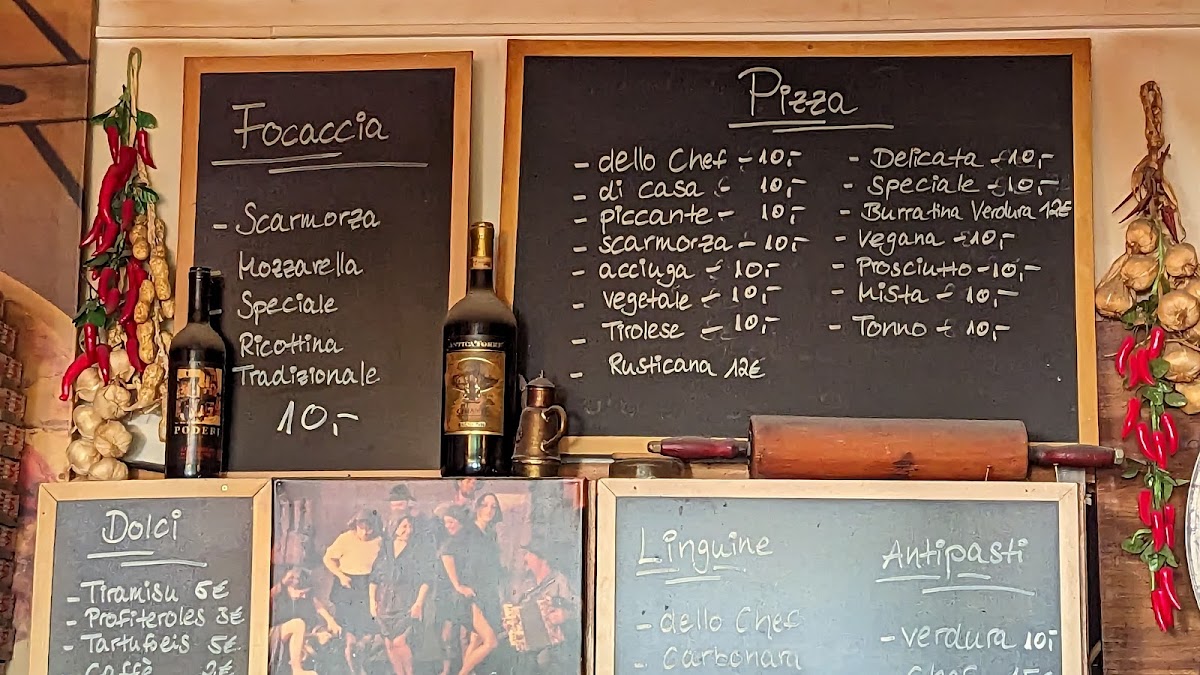 Focaccia
- Scarmorza
Mozzarella
Speciale
Ricottina
Tradizionale
10,-
Pizza
- dello Chef - 10,-
- di casa - 10,-
- piccante - 10,-
- scarmorza - 10,-
- acciuga - 10,-
- vegetale - 10,-
- Tirolese - 10,-
- Rusticana 12€
- Delicata - 10,-
- speciale - 10,-
- Burratina Verdura 12€
- Vegana - 10,-
- Prosciutto - 10,-
- Mista - 10,-
- Tonno - 10,-
PODERI
ANTICA TORRE
Dolci
- Tiramisu 6€
- Profiteroles 3€
- Tartufoeis 5€
Caffè 2€
Linguine
- dello Chef
- Carbonara
Antipasti
- verdura 10,-
chef 15€